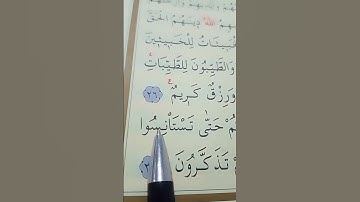 اللّٰهُ دِينَهُمُ الْحَقَّ
لِلْخَبِيثِينَ
وَالطَّيِّبُونَ لِلطَّيِّبَاتِ
وَرِزْقٌ كَرِيمٌ ﴿٢٦﴾
حَتّٰى تَسْتَأْنِسُوا
تَذَكَّرُونَ